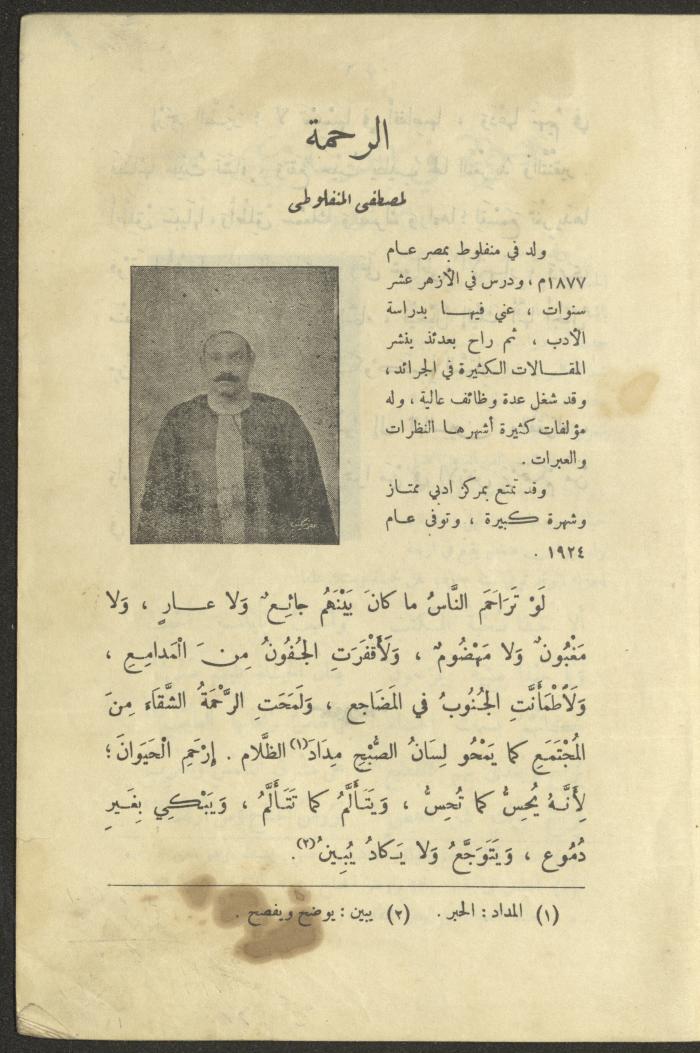 الرحمة
لمصطفى المنفلوطي
ولد في منفلوط بمصر عـام
١٨٧٧م ، ودرس في الأزهر عشر
سنوات ، عني فيهـا بدراسة
الأدب ، ثم راح بعدئذ ينشر
المقـالات الكثيرة في الجرائد ،
وقد شغل عدة وظائف عالية ، وله
مؤلفات كثيرة أشهرهـا النظرات
والعبرات .
وقد تمتع بمركز ادبي ممتـاز
وشهرة كبيرة ، وتوفي عـام
١٩٢٤ .
لَوْ تَرَاحَمَ النَّاسُ ما كانَ بَيْنَهُم جائِعٌ وَلا عـارٍ ، وَلا
مَغْبُونٌ وَلا مَهْضُومٌ ، وَلَأَقْفَرَتِ الجُفُونُ مِنَ الْمَدامِعِ ،
وَلَٱطْمَأَنَّتِ الجُنُوبُ في المَضَاجعِ ، وَلَمَحَتِ الرَّحْمَةُ الشَّقَاءَ مِنَ
المُجْتَمَعِ كما يَمْحُو لِسَانُ الصُّبْحِ مِدَادَ(١) الظَّلام . إرْحَمِ الْحَيَوانَ ؛
لِأَنَّهُ يُحِسُّ كما تُحِسُّ ، وَيَتَأَلَّمُ كما تَتَأَلَّمُ ، وَيَبْكِي بِغَيرِ
دُمُوعٍ ، وَيَتَوَجَّعُ وَلا يَكادُ يُبِينُ(٢).
(١) المداد : الحبر . (٢) يبين : يوضح ويفصح .